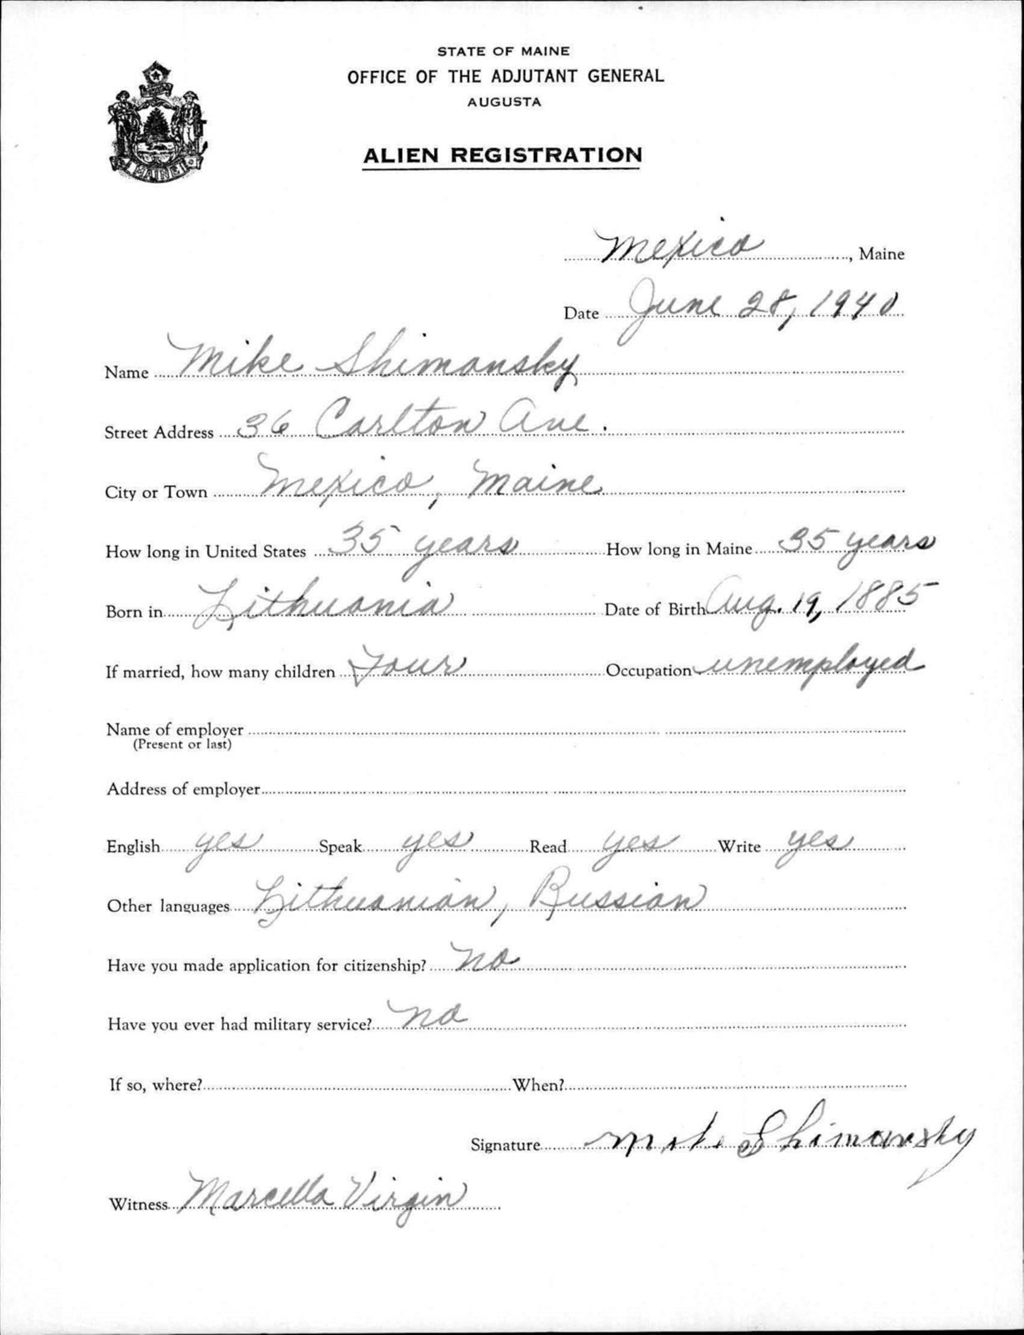 STATE OF MAINE
OFFICE OF THE ADJUTANT GENERAL
AUGUSTA
ALIEN REGISTRATION
MAINE
Mexico, Maine
Date June 28, 1940
Name Mike Shimansky
Street Address 36 Carlton Ave.
City or Town Mexico, Maine
How long in United States 35 years How long in Maine 35 years
Born in Lithuania Date of Birth Aug. 19, 1885
If married, how many children Four Occupation unemployed
Name of employer
(Present or last)
Address of employer
English yes Speak yes Read yes Write yes
Other languages Lithuanian, Russian
Have you made application for citizenship? no
Have you ever had military service? no
If so, where? When?
Signature Mike Shimansky
Witness Marcella Virgin